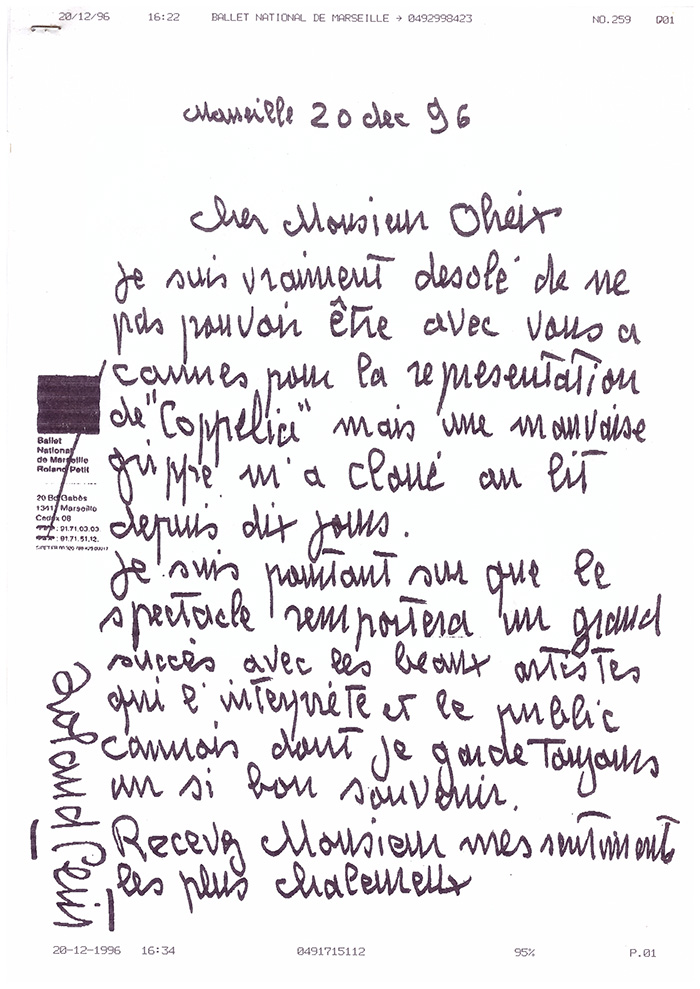 20/12/96 16:22 BALLET NATIONAL DE MARSEILLE → 0492998423 NO.259 D01
Marseille 20 dec 96
Cher Monsieur Oheix
Je suis vraiment desolé de ne
pas pouvoir être avec vous a
cannes pour la representation
de "Coppelia" mais une mauvaise
grippe m'a cloué au lit
depuis dix jours.
Je suis pourtant sur que le
spectacle remportera un grand
succès avec les beaux artistes
qui l'interprète et le public
cannois dont je garde toujours
un si bon souvenir.
Recevez Monsieur mes sentiments
les plus chaleureux
Roland Petit
Ballet
National
de Marseille
Roland Petit
20 Bd Gabès
Marseille
Cedex 08
: 91.71.03.03
: 91.71.51.12.
20-12-1996 16:34 0491715112 95% P.01